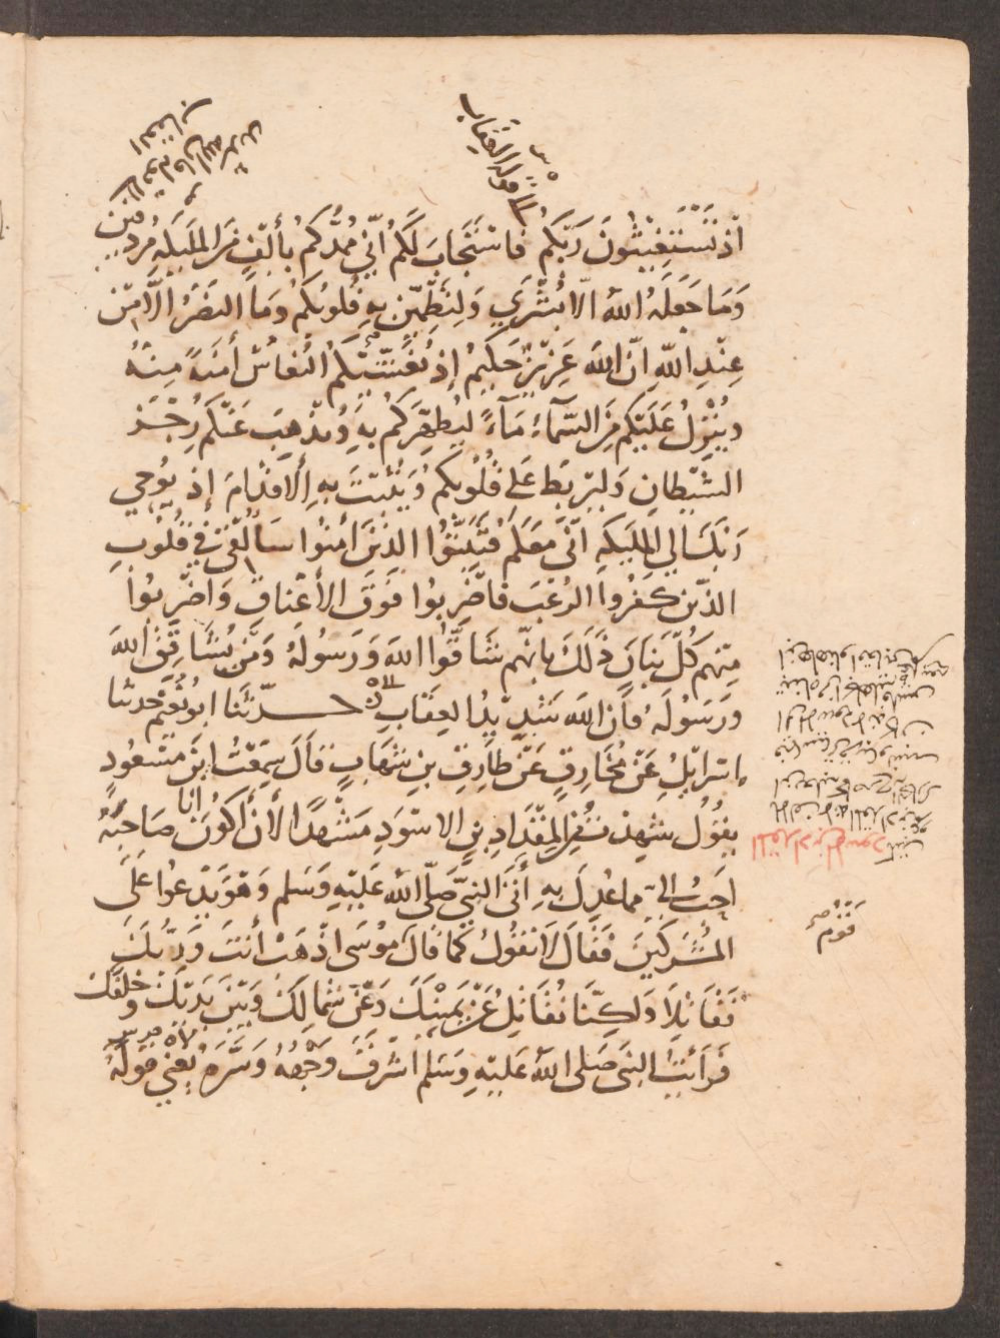 الى قوله العقاب
اذ تستغيثون ربكم فاستجاب لكم اني ممدكم بألف من الملئكة مردفين
وما جعله الله الا بشرى ولتطمئن به قلوبكم وما النصر الا من
عند الله ان الله عزيز حكيم إذ يغشيكم النعاس أمنة منه
وينزل عليكم من السماء ماء ليطهركم به ويذهب عنكم رجز
الشيطان وليربط على قلوبكم ويثبت به الاقدام إذ يوحي
ربك الي الملئكة اني معكم فثبتوا الذين امنوا سألقي في قلوب
الذين كفروا الرعب فاضربوا فوق الأعناق واضربوا
منهم كل بنان ذلك بانهم شاقوا الله ورسوله ومن يشاقق الله
ورسوله فان الله شديد العقاب حدثنا ابو نعيم حدثنا
اسرائيل عن مخارق عن طارق بن شهاب قال سمعت ابن مسعود
يقول شهدت من المقداد بن الاسود مشهدا لأن أكون انا صاحبه
احب الي مما عدل به أتى النبي صلى الله عليه وسلم وهو يدعوا على
المشركين فقال لا نقول كما قال موسى اذهب أنت وربك
فقاتلا ولكنا نقاتل عن يمينك وعن شمالك وبين يديك وخلفك
فرأيت النبي صلى الله عليه وسلم اشرق وجهه وسره يعني قوله
قوم
المقداد بن الاسود